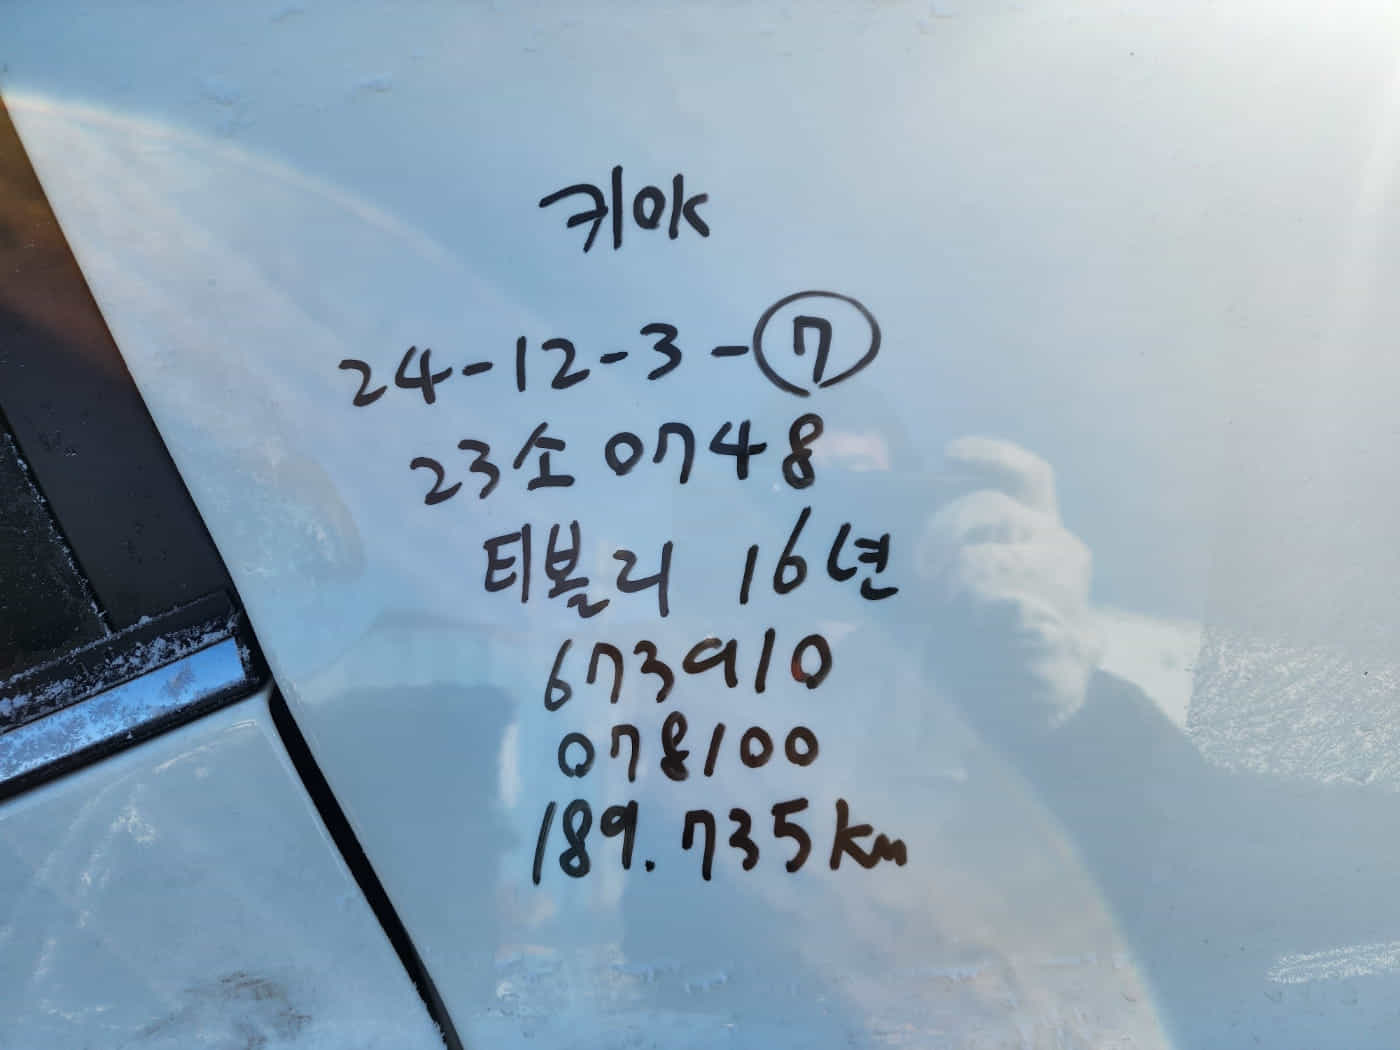 키OK
24-12-3-7
23소0748
티볼리 16년
673910
078100
189.735km